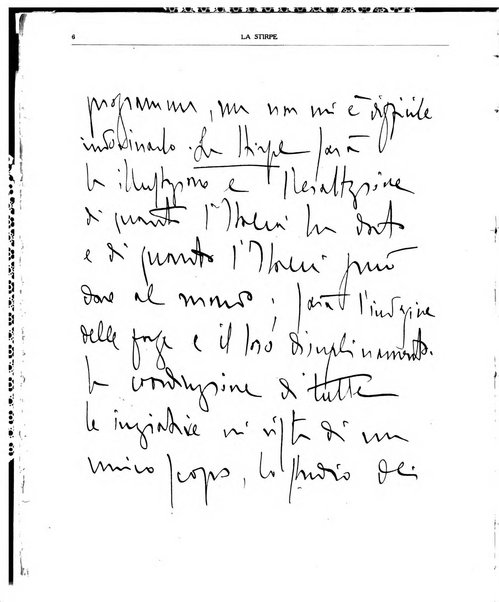 6
LA STIRPE
programma, ma non mi è difficile
indovinarlo. La Stirpe sarà
la illustrazione e l'esaltazione
di quanto l'Italia ha dato
e di quanto l'Italia può
dare al mondo; sarà l'indagine
delle forze e il loro disciplinamento.
la coordinazione di tutte
le iniziative in vista di un
unico scopo, lo studio dei